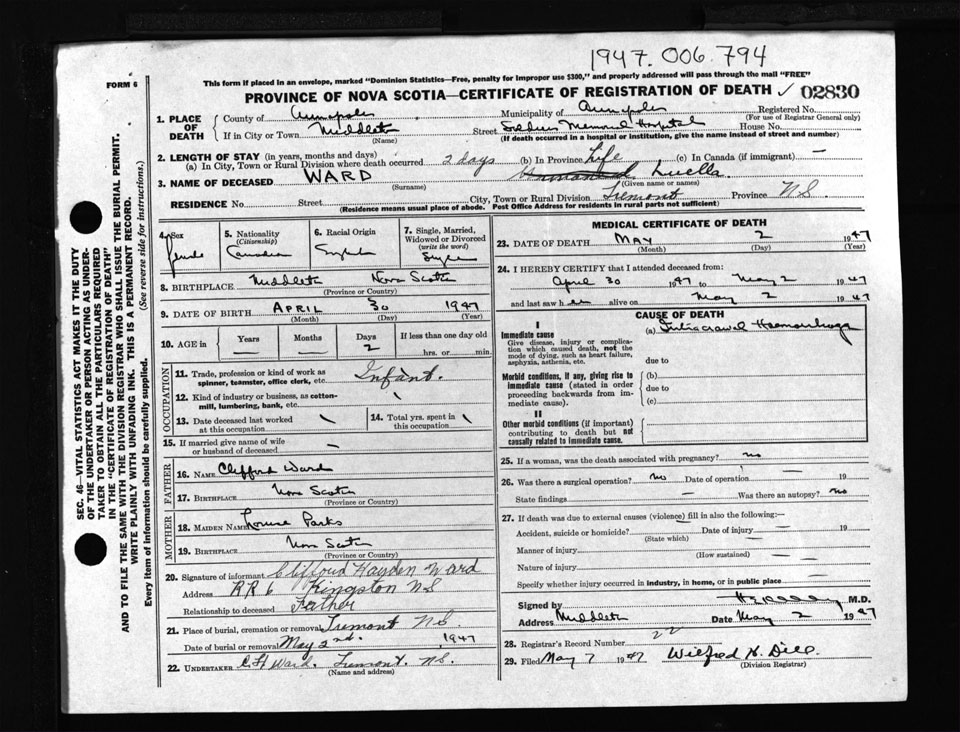 1947. 006. 794
FORM 6
This form if placed in an envelope, marked "Dominion Statistics—Free, penalty for improper use $300," and properly addressed will pass through the mail "FREE"
PROVINCE OF NOVA SCOTIA—CERTIFICATE OF REGISTRATION OF DEATH ✓ 02830
1. PLACE OF DEATH
County of Annapolis Municipality of Annapolis Registered No.
(For use of Registrar General only)
If in City or Town Middleton Street Soldiers Memorial Hospital House No.
(Name) (If death occurred in a hospital or institution, give the name instead of street and number)
2. LENGTH OF STAY (in years, months and days)
(a) In City, Town or Rural Division where death occurred 2 days (b) In Province Life (c) In Canada (if immigrant) —
3. NAME OF DECEASED WARD Luella
(Surname) (Given name or names)
RESIDENCE No. Street City, Town or Rural Division Tremont Province N.S.
(Residence means usual place of abode. Post Office Address for residents in rural parts not sufficient)
4. Sex
Female
5. Nationality
(Citizenship)
Canadian
6. Racial Origin
English
7. Single, Married, Widowed or Divorced
(write the word)
Single
8. BIRTHPLACE Middleton Nova Scotia
(Province or Country)
9. DATE OF BIRTH APRIL 30 1947
(Month) (Day) (Year)
10. AGE in
Years Months Days If less than one day old
— — 2 hrs. or min.
OCCUPATION
11. Trade, profession or kind of work as spinner, teamster, office clerk, etc. Infant.
12. Kind of industry or business, as cotton-mill, lumbering, bank, etc.
13. Date deceased last worked at this occupation
14. Total yrs. spent in this occupation
15. If married give name of wife or husband of deceased —
FATHER
16. NAME Clifford Ward
17. BIRTHPLACE Nova Scotia
(Province or Country)
MOTHER
18. MAIDEN NAME Louise Parks
19. BIRTHPLACE Nova Scotia
(Province or Country)
20. Signature of informant Clifford Hayden Ward
Address RR 6 Kingston NS
Relationship to deceased Father
21. Place of burial, cremation or removal Tremont N.S.
Date of burial or removal May 2nd. 1947
22. UNDERTAKER C.H Ward. Tremont. N.S.
(Name and address)
MEDICAL CERTIFICATE OF DEATH
23. DATE OF DEATH MAY 2 1947
(Month) (Day) (Year)
24. I HEREBY CERTIFY that I attended deceased from:
April 30 1947 to May 2 1947
and last saw her alive on May 2 1947
CAUSE OF DEATH
I
Immediate cause (a) Intracranial Haemorrhage
Give disease, injury or complication which caused death, not the mode of dying, such as heart failure, asphyxia, asthenia, etc.
due to
Morbid conditions, if any, giving rise to immediate cause (stated in order proceeding backwards from immediate cause).
(b)
due to
(c)
II
Other morbid conditions (if important) contributing to death but not causally related to immediate cause.
25. If a woman, was the death associated with pregnancy? no
26. Was there a surgical operation? no Date of operation — 19
State findings — Was there an autopsy? no
27. If death was due to external causes (violence) fill in also the following:—
Accident, suicide or homicide? — Date of injury — 19
(State which)
Manner of injury —
(How sustained)
Nature of injury —
Specify whether injury occurred in industry, in home, or in public place —
Signed by M.D.
Address Middleton Date May 2 1947
28. Registrar's Record Number 22
29. Filed May 7 1947 Wilfred H. Dill.
(Division Registrar)
SEC. 46—VITAL STATISTICS ACT MAKES IT THE DUTY
OF THE UNDERTAKER OR PERSON ACTING AS UNDERTAKER TO OBTAIN ALL THE PARTICULARS REQUIRED
IN THE "CERTIFICATE OF REGISTRATION OF DEATH"
AND TO FILE THE SAME WITH THE DIVISION REGISTRAR WHO SHALL ISSUE THE BURIAL PERMIT.
WRITE PLAINLY WITH UNFADING INK. THIS IS A PERMANENT RECORD.
Every item of information should be carefully supplied. (See reverse side for instructions.)